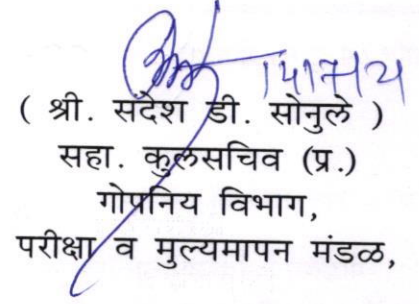 ( श्री. संदेश डी. सोनुले )
सहा. कुलसचिव (प्र.)
गोपनिय विभाग,
परीक्षा व मुल्यमापन मंडळ,